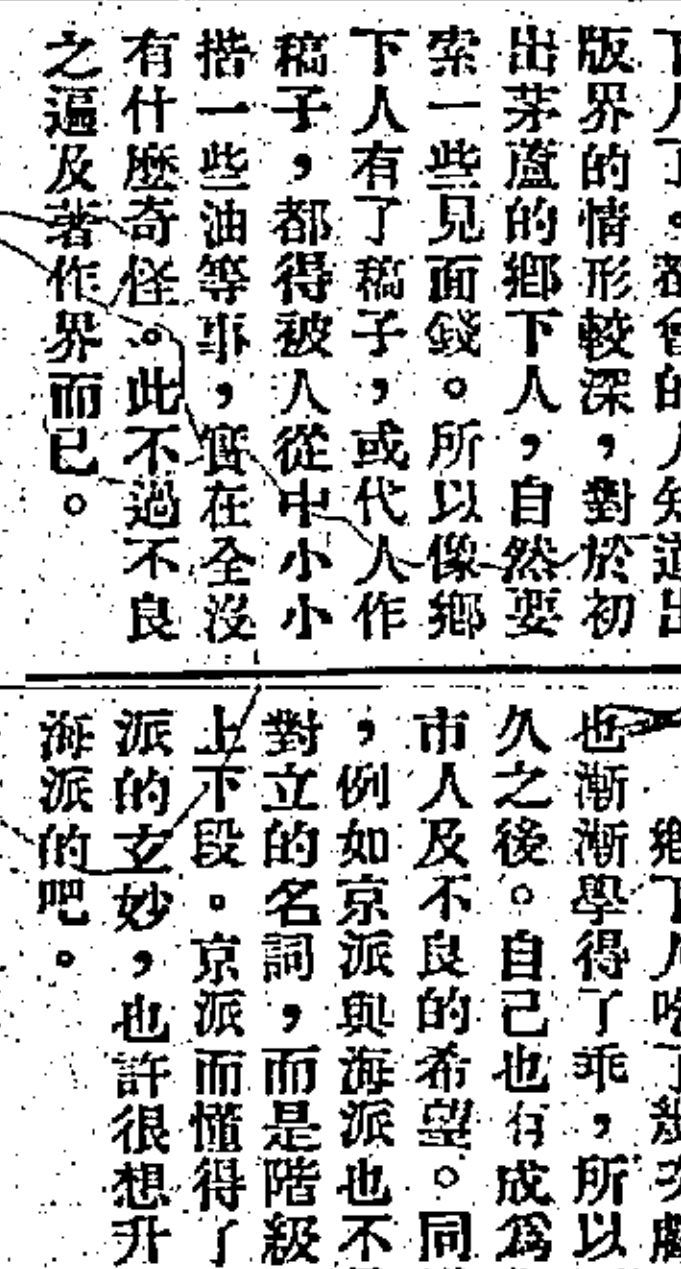 下人了。都會的人知道出
版界的情形較深，對於初
出茅蘆的鄉下人，自然要
索一些見面錢。所以像鄉
下人有了稿子，或代人作
稿子，都得被人從中小小
揩一些油等事，實在全沒
有什麼奇怪。此不過不良
之逼及著作界而已。
鄉下人吃了幾次
也漸漸學得了乖，所以
久之後。自己也有成爲
市人及不良的希望。同
，例如京派與海派也不
對立的名詞，而是階級
上下段。京派而懂得了
派的玄妙，也許很想升
海派的吧。